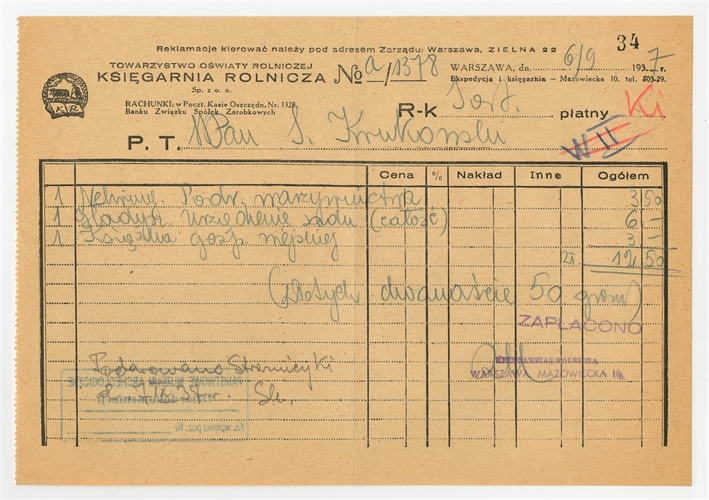 Reklamacje kierować należy pod adresem Zarządu: Warszawa, ZIELNA 22
34
TOWARZYSTWO OŚWIATY ROLNICZEJ
KSIĘGARNIA ROLNICZA
Sp. z o. o.
No a/1378
WARSZAWA, dn. 6/9 1937 r.
Ekspedycja i księgarnia – Mazowiecka 10. tel. 503-29.
K R
RACHUNKI: w Poczt. Kasie Oszczędn. Nr. 1328,
Banku Związku Spółek Zarobkowych
R-k Got. płatny Ki
W II
P. T. WPan S. Krukowski
Cena % Nakład Inne Ogółem
1 Podr. warzywnictwa 3,50
1 Gładysz Urządzenie sadu (całość) 6.–
1 Książka gosp. wiejskiej 3.–
zł. 12.50
(złotych dwanaście 50 groszy)
ZAPŁACONO
KSIĘGARNIA ROLNICZA
WARSZAWA, MAZOWIECKA 10.
Podarowano